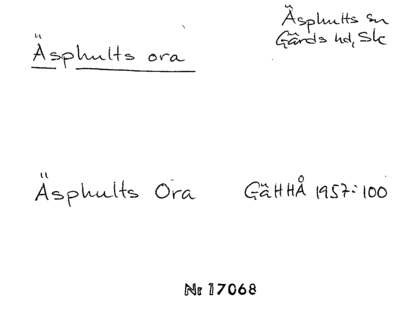 Äsphults ora
Äsphults sn
Gärds hd, Sk
Äsphults Ora GäHHÅ 1957: 100
Nr 17068